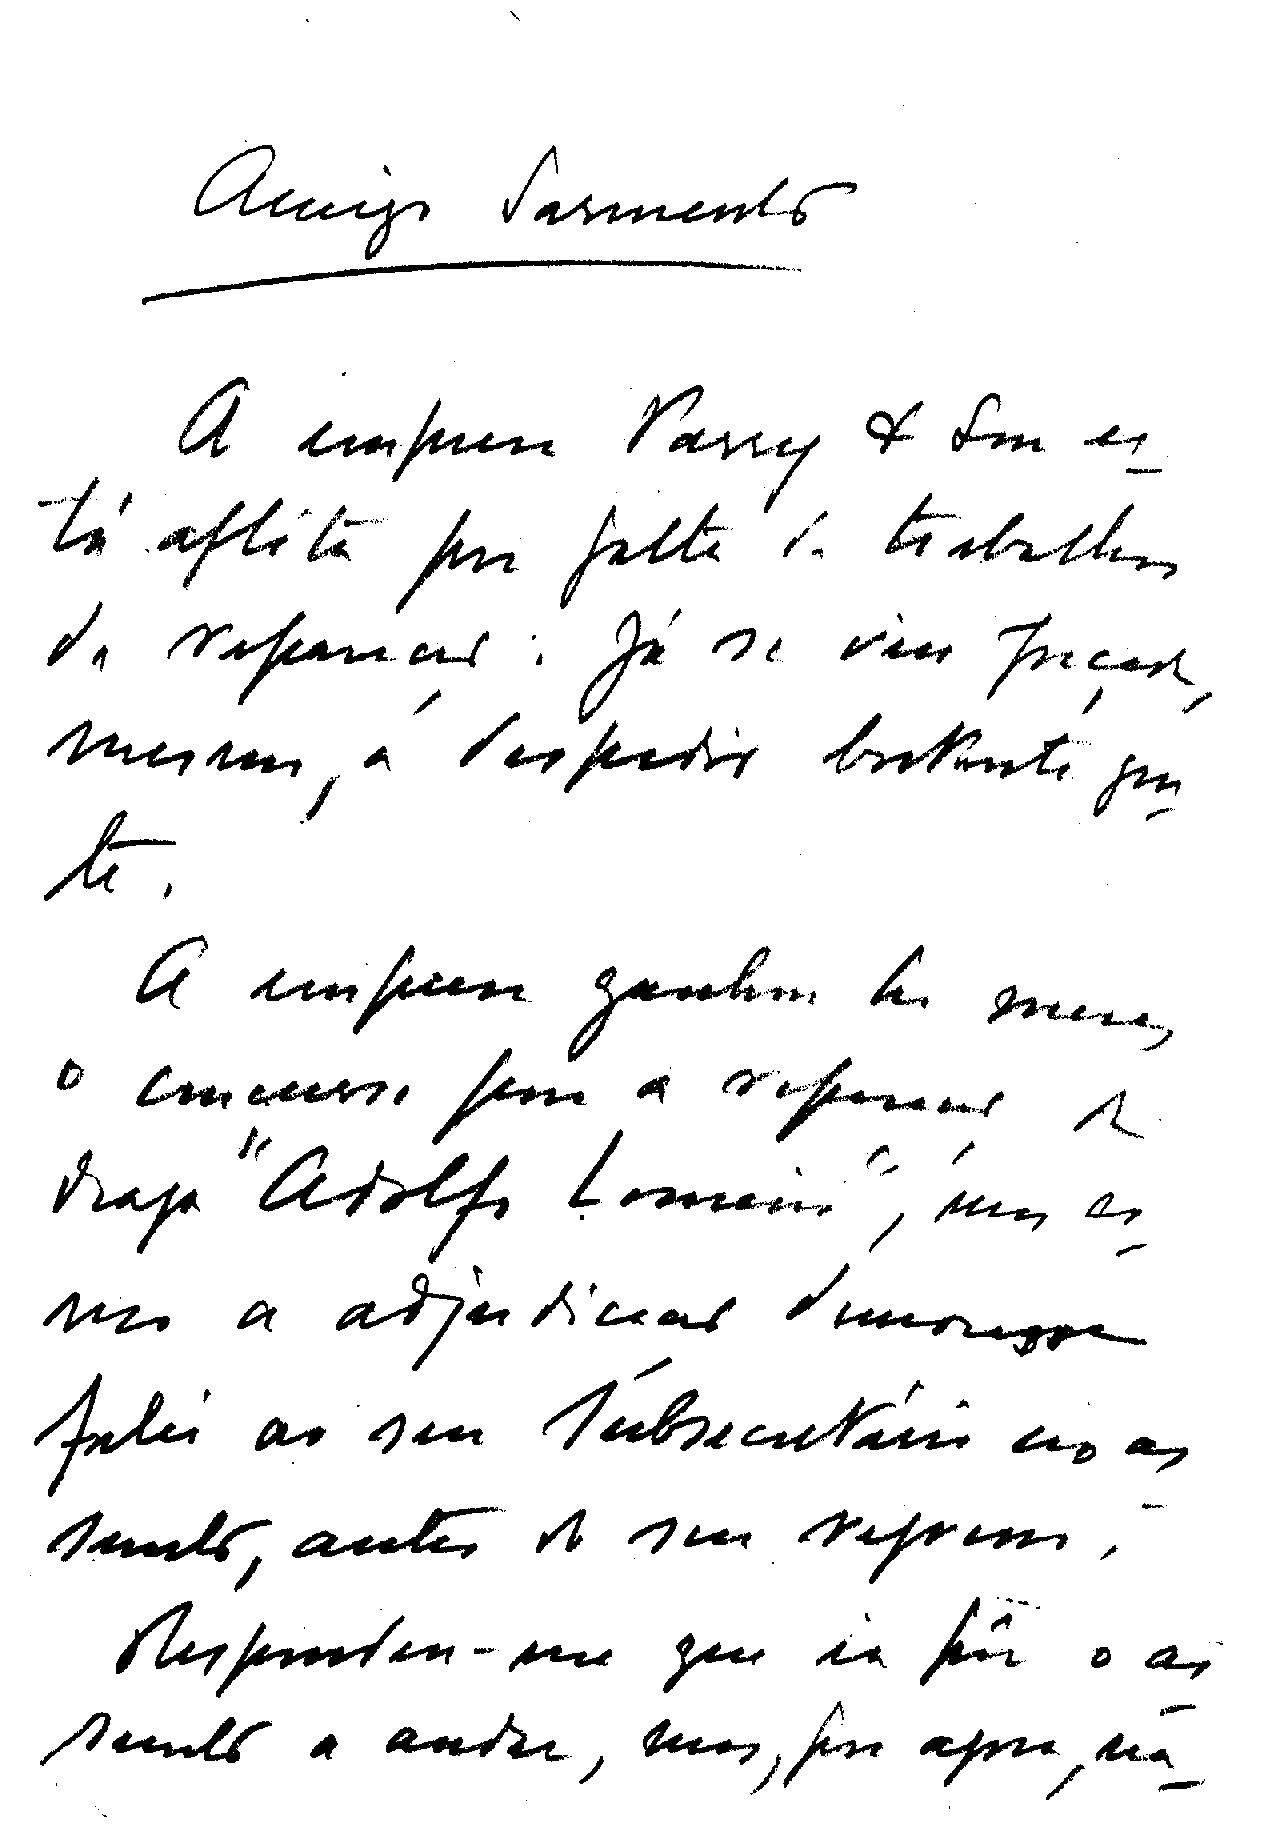 Amigo Sarmento
A empresa Parry & Son es-
tá aflita por falta de trabalhos
de reparação. Já se viu forçada,
mesmo, a despedir bastante gen-
te.
A empresa ganhou há meses
o concurso para a reparação da
draga "Adolfo Loureiro", mas es-
sa adjudicação
Falei ao seu Subsecretário no as-
sunto, antes do seu regresso.
Respondeu-me que ia pôr o as-
sunto a andar, mas, por agora, na-